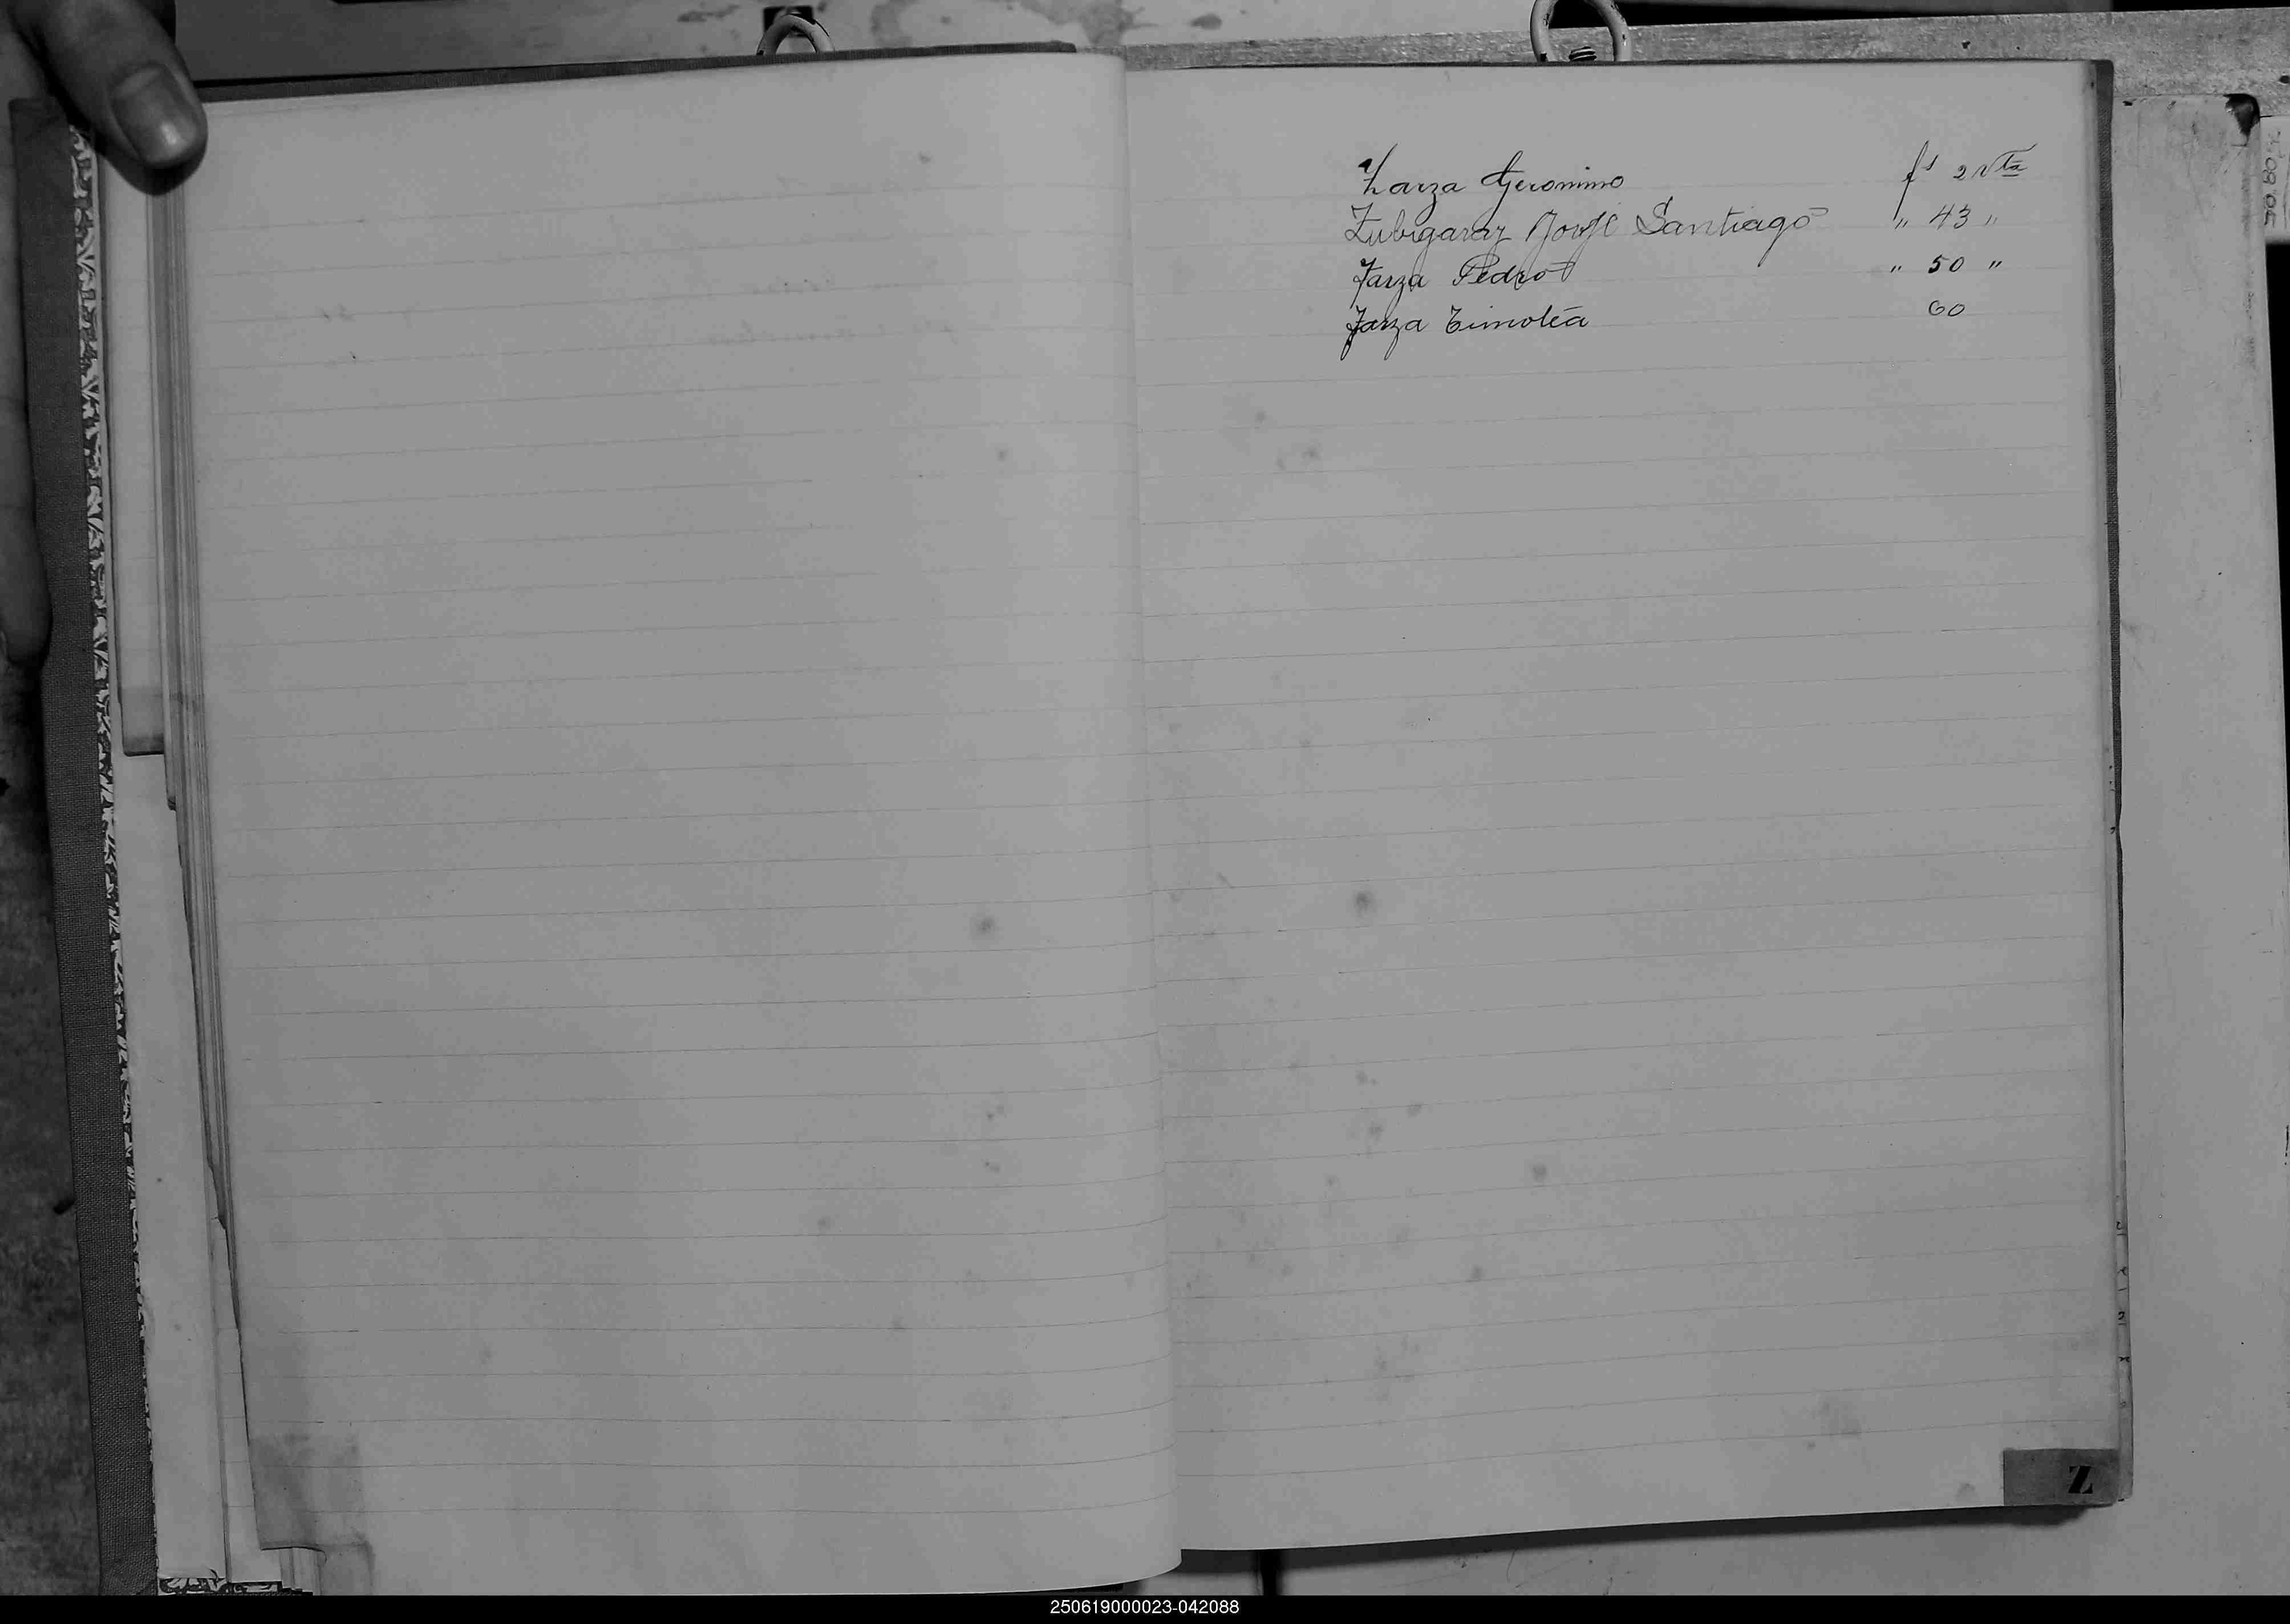 Zarza Geronimo fs 2 vta
Zubigaray Jorje Santiago " 43 "
Zarza Pedro " 50 "
Zarza Timotea 60
Z
250619000023-042088